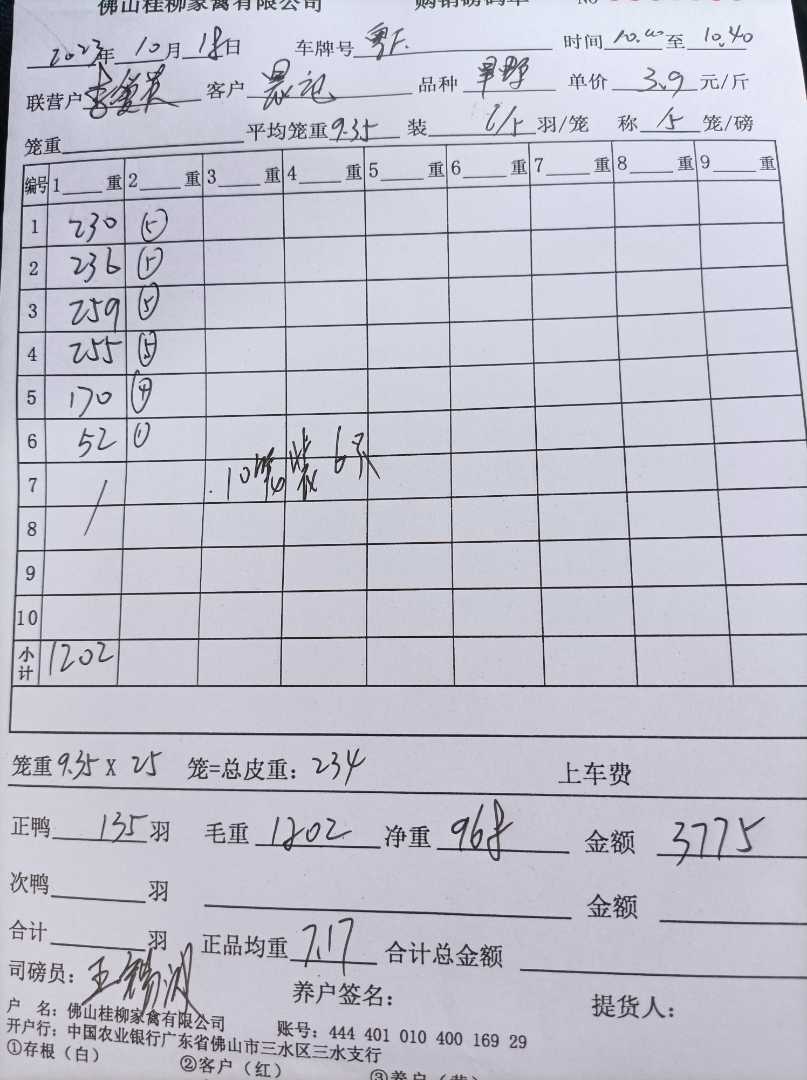 佛山桂柳家禽有限公司 购销磅码单 No
2023年 10月 18日 车牌号 粤F. 时间 10.00 至 10.40
联营户 客户 品种 单价 3.9 元/斤
笼重 平均笼重 9.35 装 6/5 羽/笼 称 5 笼/磅
编号 1 重 2 重 3 重 4 重 5 重 6 重 7 重 8 重 9 重
1 230 ⑤
2 236 ⑤
3 259 ⑤
4 255 ⑤
5 170 ④
6 52 ①
10笼装6只
7
8
9
10
小计 1202
笼重 9.35 X 25 笼=总皮重: 234 上车费
正鸭 135 羽 毛重 1202 净重 968 金额 3775
次鸭 羽 金额
合计 羽 正品均重 7.17 合计总金额
司磅员: 养户签名: 提货人:
户 名: 佛山桂柳家禽有限公司 账号: 444 401 010 400 169 29
开户行: 中国农业银行广东省佛山市三水区三水支行
①存根（白） ②客户（红） ③养户（黄）